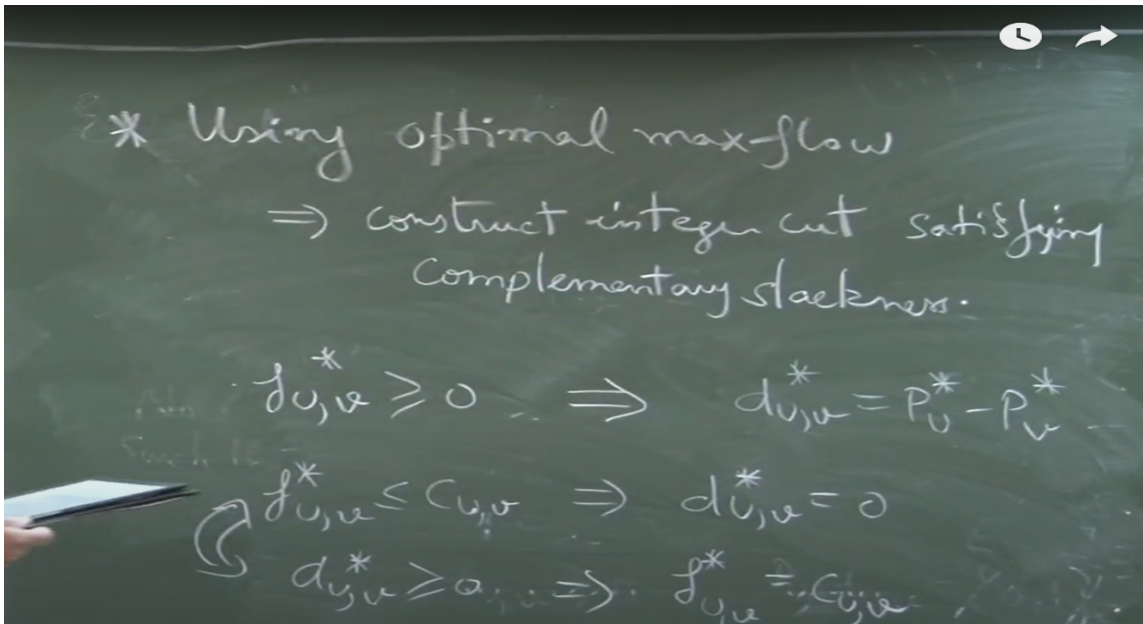 * Using optimal max-flow
⇒ construct integer cut satisfying
complementary slackness.
f*u,v ≥ 0 ⇒ d*u,v = P*u - P*v
f*u,v ≤ Cu,v ⇒ d*u,v = 0
d*u,v ≥ 0 ⇒ f*u,v = Cu,v